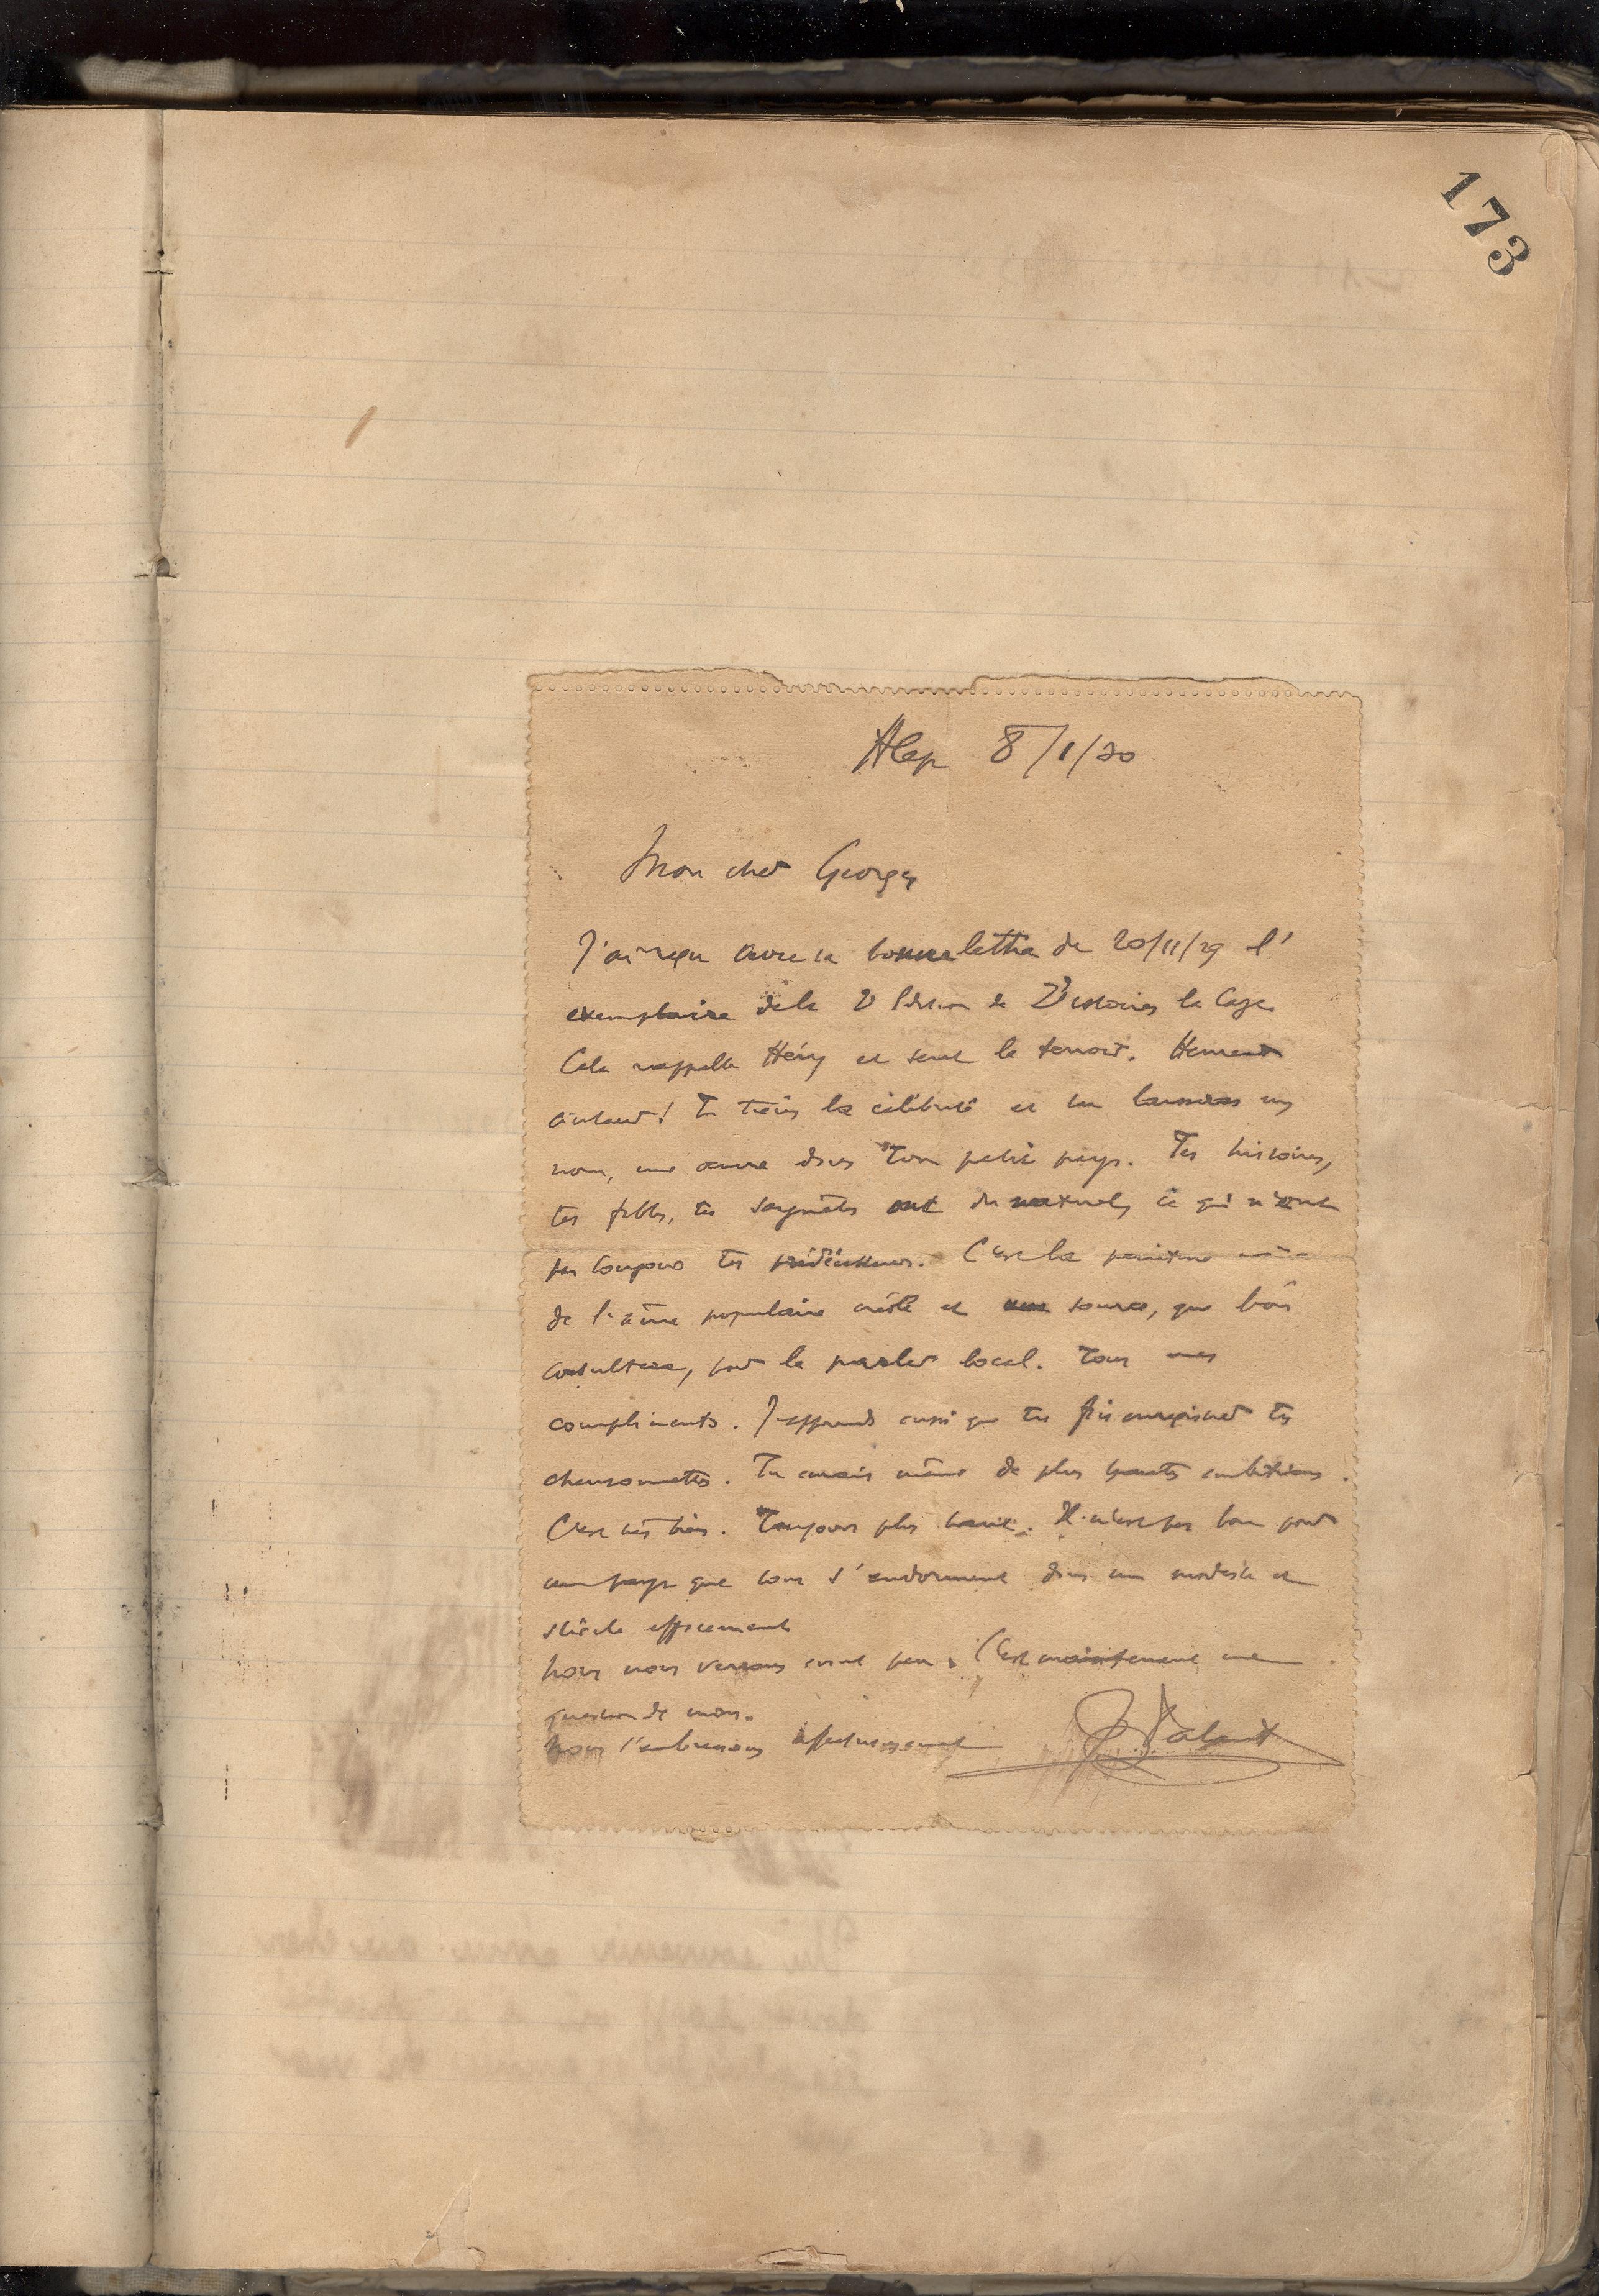 173
Alep 8/1/30
Mon cher Georges
J'ai reçu avec ta bonne lettre du 20/11/29 l'
exemplaire de la 2 Edition de Z'istoires la Caze
Cela rappelle Héry et sent le terroir. Heureux
auteur! Tu tiens la célébrité et tu laisseras un
nom, une œuvre dans ton petit pays. Tes histoires,
tes fables, tes saynètes ont du naturel, ce qui n'ont
pas toujours tes prédécesseurs. C'est la peinture même
de l'âme populaire créole et une source, que l'on
consultera, pour le parler local. Tous mes
compliments. J'apprends aussi que tu fais enregistrer tes
chansonnettes. Tu aurais même de plus hautes ambitions.
C'est très bien. Toujours plus haut. Il n'est pas bon pour
un pays que tous s'endorment dans un modeste et
stérile effacement
Nous nous verrons avant peu. C'est maintenant une
question de mois.
Nous t'embrassons affectueusement